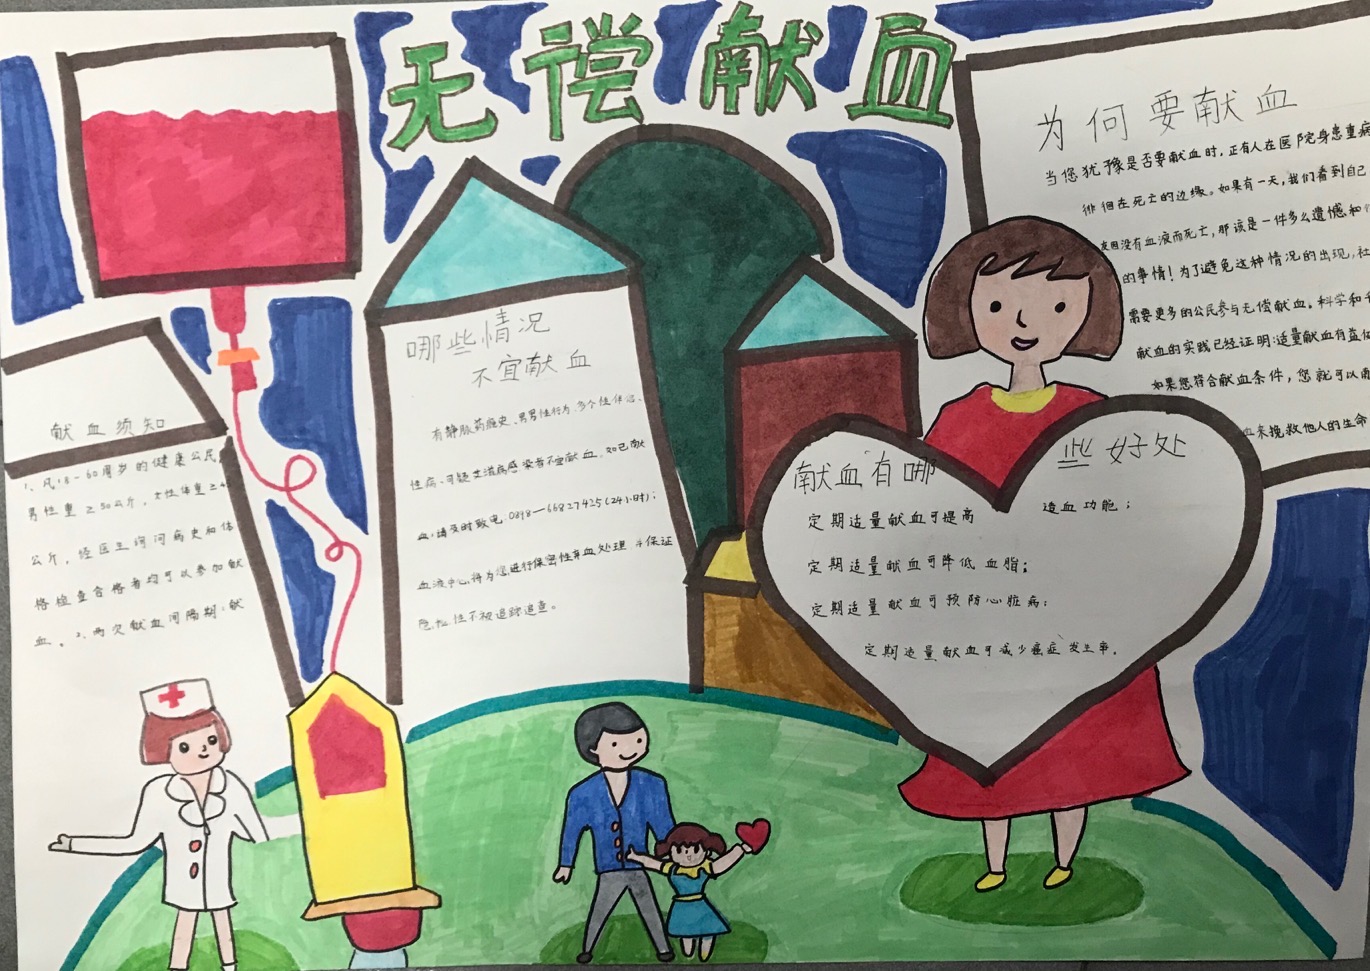 无偿献血
献血须知
1、凡18-60周岁的健康公民
男性重≥50公斤，女性体重≥4
公斤，经医生询问病史和体
格检查合格者均可以参加献
血。2、两次献血间隔期：献
哪些情况
不宜献血
有静脉药瘾史、男男性行为、多个性伴侣、
性病、可疑艾滋病感染者不宜献血。如已献
血，请及时致电：0898—66827425（24小时）；
血液中心将为您进行保密性弃血处理
危险性不被追踪追查。
为何要献血
当您犹豫是否要献血时，正有人在医院身患重病
徘徊在死亡的边缘。如果有一天，我们看到自己
友因没有血液而死亡，那该是一件多么遗憾和
的事情！为了避免这种情况的出现，社
需要更多的公民参与无偿献血。科学和
献血的实践已经证明：适量献血有益
如果您符合献血条件，您就可以
血来挽救他人的生命
献血有哪些好处
定期适量献血可提高造血功能；
定期适量献血可降低血脂；
定期适量献血可预防心脏病；
定期适量献血可减少癌症发生率。